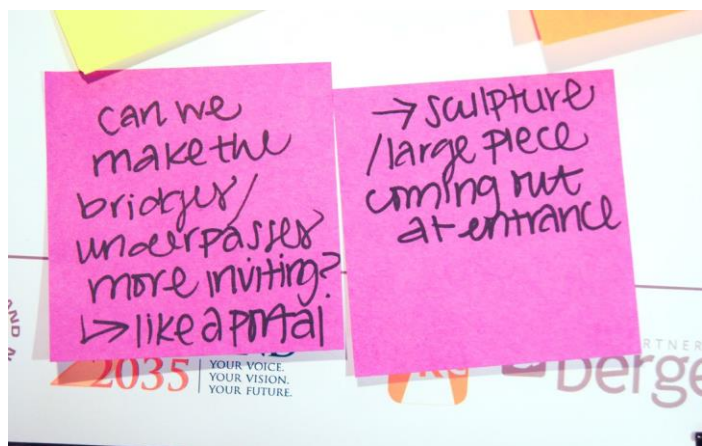 can we
make the
bridges/
underpasses
more inviting?
↳ like a portal
→ sculpture
/large piece
coming out
at entrance
2035
YOUR VOICE.
YOUR VISION.
YOUR FUTURE.